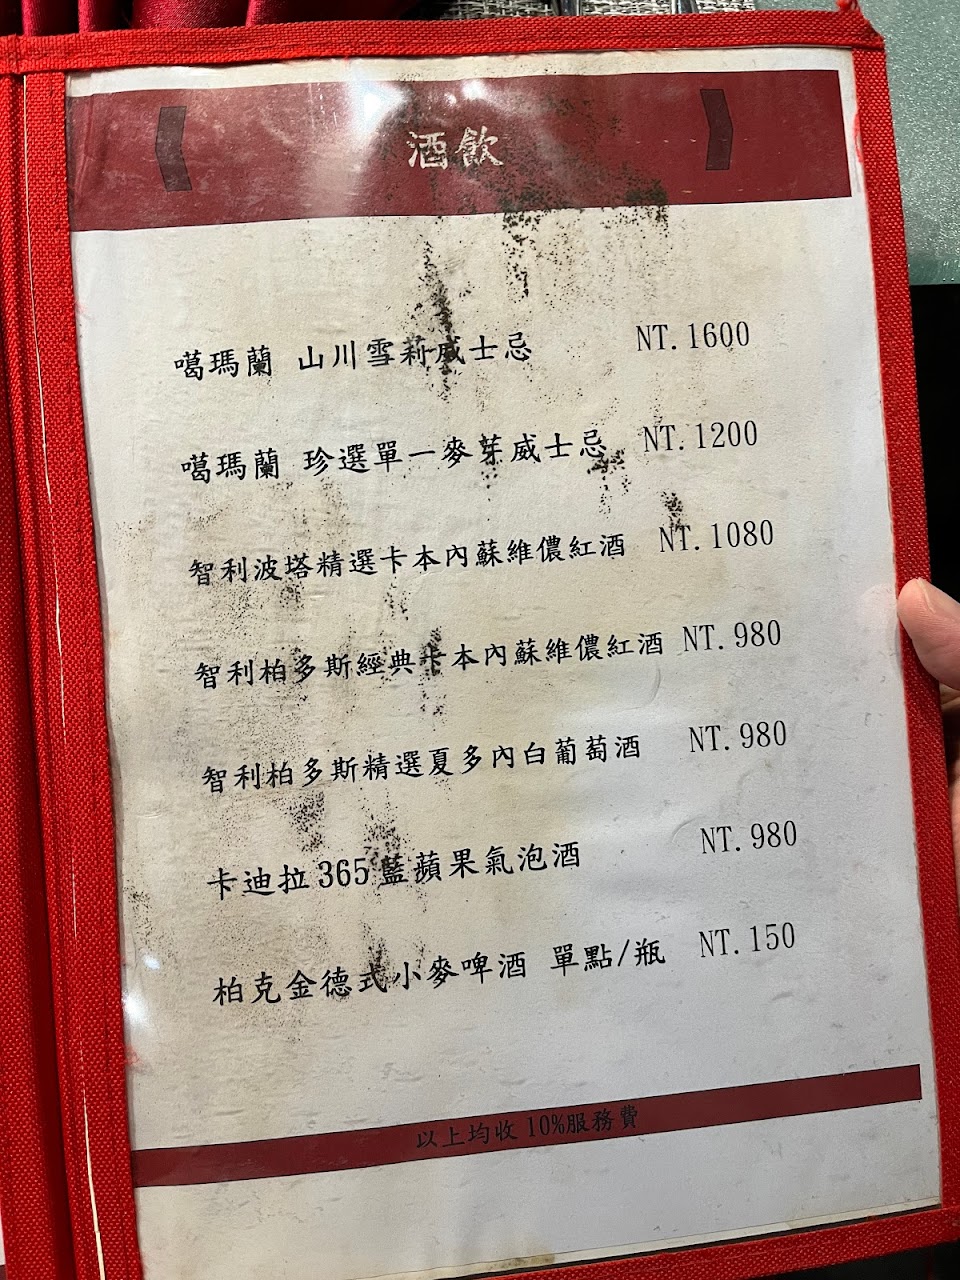 酒飲
噶瑪蘭 山川雪莉威士忌 NT.1600
噶瑪蘭 珍選單一麥芽威士忌 NT.1200
智利波塔精選卡本內蘇維儂紅酒 NT.1080
智利柏多斯經典卡本內蘇維儂紅酒 NT.980
智利柏多斯精選夏多內白葡萄酒 NT.980
卡迪拉365藍蘋果氣泡酒 NT.980
柏克金德式小麥啤酒 單點/瓶 NT.150
以上均收10%服務費